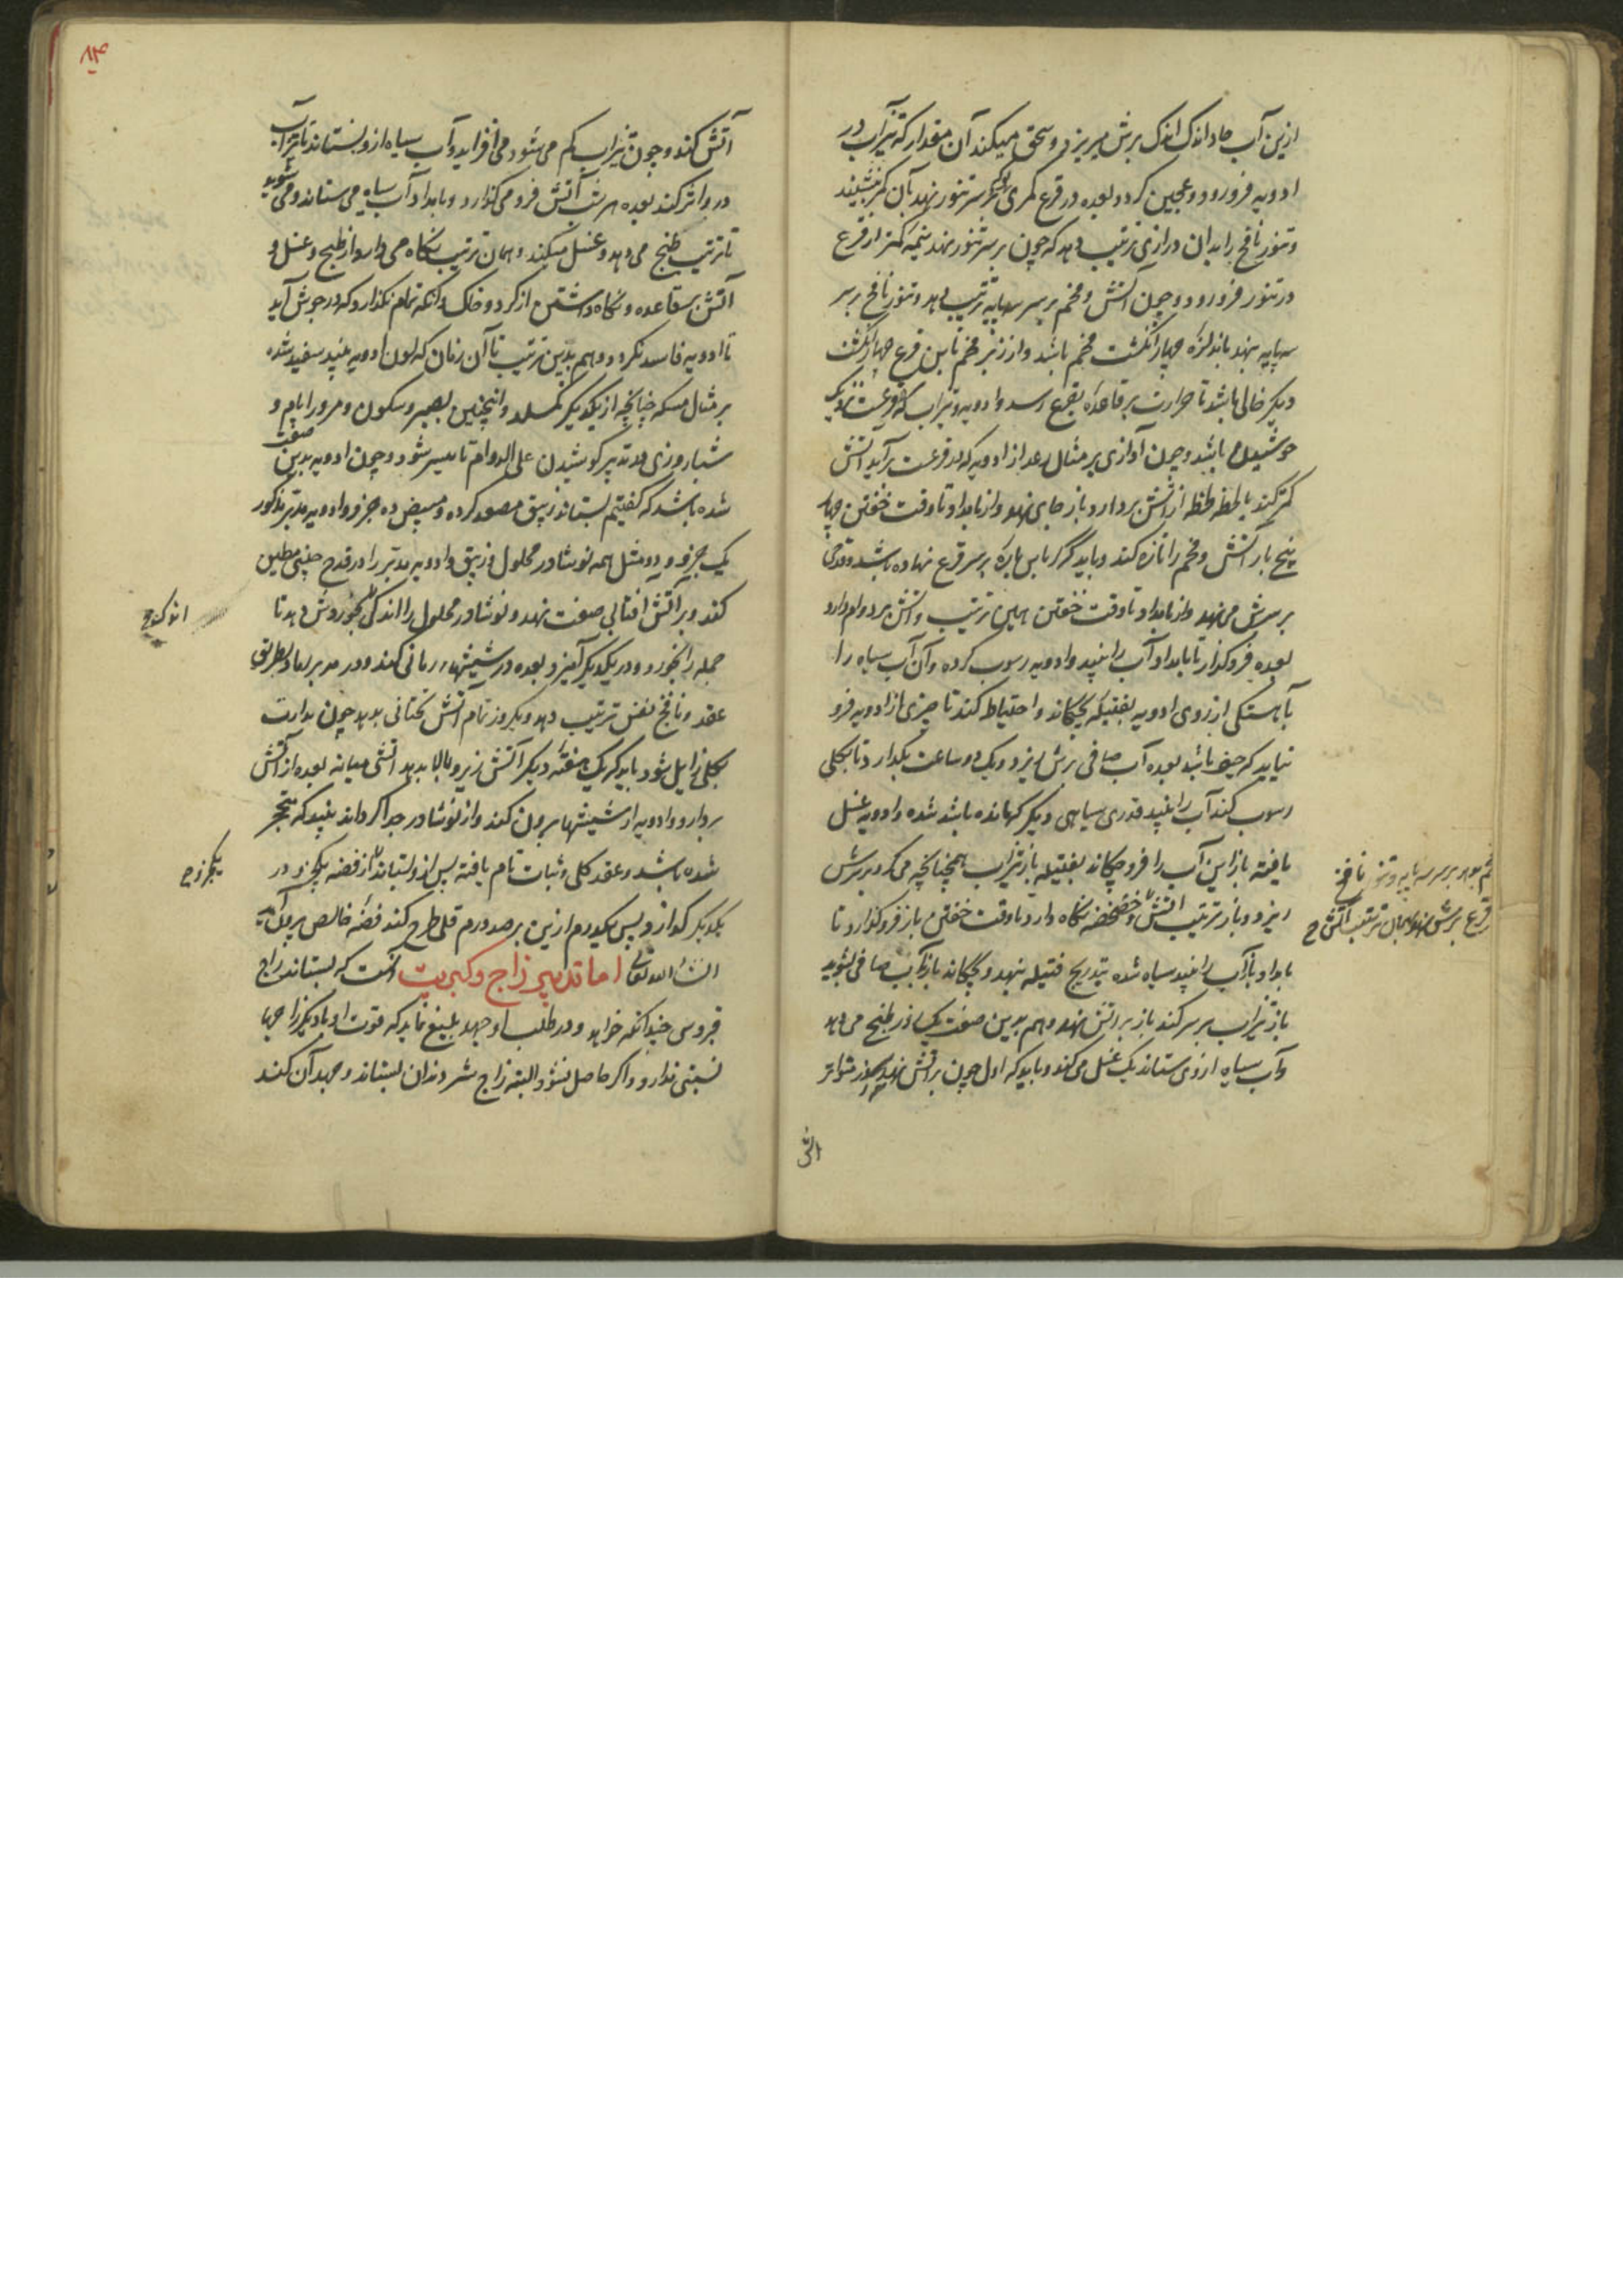 ازین آب حاد اندک اندک برش میریزد و سحق میکند آن مقدار که تیزآب در
ادویه فرو رود و عجین کردد بعده در قرع کمری بر سر تنور نهد بآن کمر بنشیند
و تنور نافخ را بدان درازی ترتیب دهد که چون بر سر تنور نهد نیمه کمتر از قرع
در تنور فرو رود و چون آتش و فحم بر سر سه پایه ترتیب دهد و تنور نافخ بر سر
سه پایه نهد باندازه چهار انگشت فحم باشد و از زبر فحم تا بن قرع چهار انگشت
دیکر خالی باشد تا حرارت بر قاعده بقرع رسد و ادویه و تیزاب که در قرعست نزدیک
جوشیدن باشد و چون آوازی بر مثال رعد از ادویه که در قرعست برآید آتش
کمتر کند یا لحظه لحظه از آتش بردارد و باز جای نهد و از بامداد تا وقت خفتن چهار
پنج بار آتش و فحم را تازه کند و باید که کرباس پاره بر سر قرع نهاده باشد و قدحی
بر سرش می نهد و از بامداد تا وقت خفتن همین ترتیب و آتش بر دوام دارد
بعده فرو کذارد تا بامداد آب را بیند و ادویه رسوب کرده و آن آب سیاه را
بآهستکی از روی ادویه بفتیله بچکاند و احتیاط کند تا چیزی از ادویه فرو
نیاید که حیف باشد بعده آب صافی برش ریزد و یک دو ساعت بکذارد تا بکلی
رسوب کند آب را بیند قدری سیاهی دیکر که مانده باشد شده و ادویه غسل
یافته باز این آب را فرو چکاند بفتیله باز تیزاب همچنانچه می کرد بر سرش
ریزد و باز ترتیب آتش و خضخضه نکاه دارد تا وقت خفتن باز فرو کذارد تا
بامداد باز آب را بیند سیاه شده بتدریج فتیله بنهد و بچکاند باز بآب صافی بشوید
باز تیزاب بر سر کند باز بر آتش نهد و هم بدین صفت یکماه در طبخ می دهد
و آب سیاه از وی ستاند یک غسل می کند و باید که اول چون بر آتش نهد متواتر
آتش
فحم بود بر سر سه پایه و تنور نافخ
قرع برش نهد و همان ترتیب آتش ح
۸۴
آتش کند و چون تیزاب کم می شود می افزاید و آب سیاه ازو بستاند تا تیزاب
درو اثر کند بعده هر شب آتش فرو می کذارد و بامداد آب سیاه می ستاند و می شوید
تا ترتیب طبخ می دهد و غسل میکند و همان ترتیب نکاه می دارد از طبخ و غسل و
آتش بقاعده و نکاه داشتن از کرد و خاک و آنکه تمام نکذارد که در جوش آید
تا ادویه فاسد نکردد و هم بدین ترتیب تا آن زمان که لون ادویه بیند سفید شده
بر مثال مسکه چنانچه از یکدیکر کسلد و اینچنین بصبر و سکون و مرور ایام و
شباروزی در تدبیر کوشیدن علی الدوام تا میسر شود و چون ادویه بدین صفت
شده باشد که کفتیم بستاند زیبق مصعد کرده و مبیض ده جزو و ادویه مدبر مذکور
یک جزو و دو مثل همه نوشادر محلول و زیبق و ادویه مدبر را در قدح چینی مطین
کند و بر آتش آفتابی صفت نهد و نوشادر محلول را اندکی بخوردش دهد تا
جمله را بخورد و در یکدیکر آمیزد بعده در شیشهاء رمانی کند و در مدبر نهاد بطریق
عقد و نافخ نفس ترتیب دهد و یکروز تمام آتش تحتانی بدهد چون نداوت
بکلی زایل شود باید که یک هفته دیکر آتش زیر و بالا بدهد آتشی میانه بعده از آتش
بردارد و ادویه از شیشها برون کند و از نوشادر جدا کرداند بیند که متحجر
شده باشد و عقد کلی و ثبات تام یافته پس ازو بستاند از فضه یکجزو در
یکدیکر کدازد پس یکدرم ازین بر صد درم قلعی طرح کند فضه خالص برون آید
ان شاء الله تعالی اما تدبیر زاج و کبریت آنست که بستاند زاج
قبروسی چندانکه خواهد و در طلب او جهد بلیغ نماید که قوت او با دیکر زاجها
نسبتی ندارد و اکر حاصل نشود البته زاج شتر دندان بستاند و جهد آن کند
اندکی ح
یکجزو ح